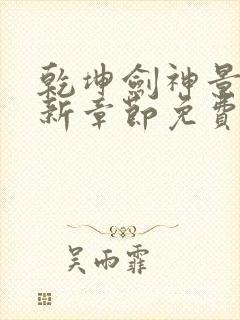 乾坤劍神景
新章節免費
吴雨霏